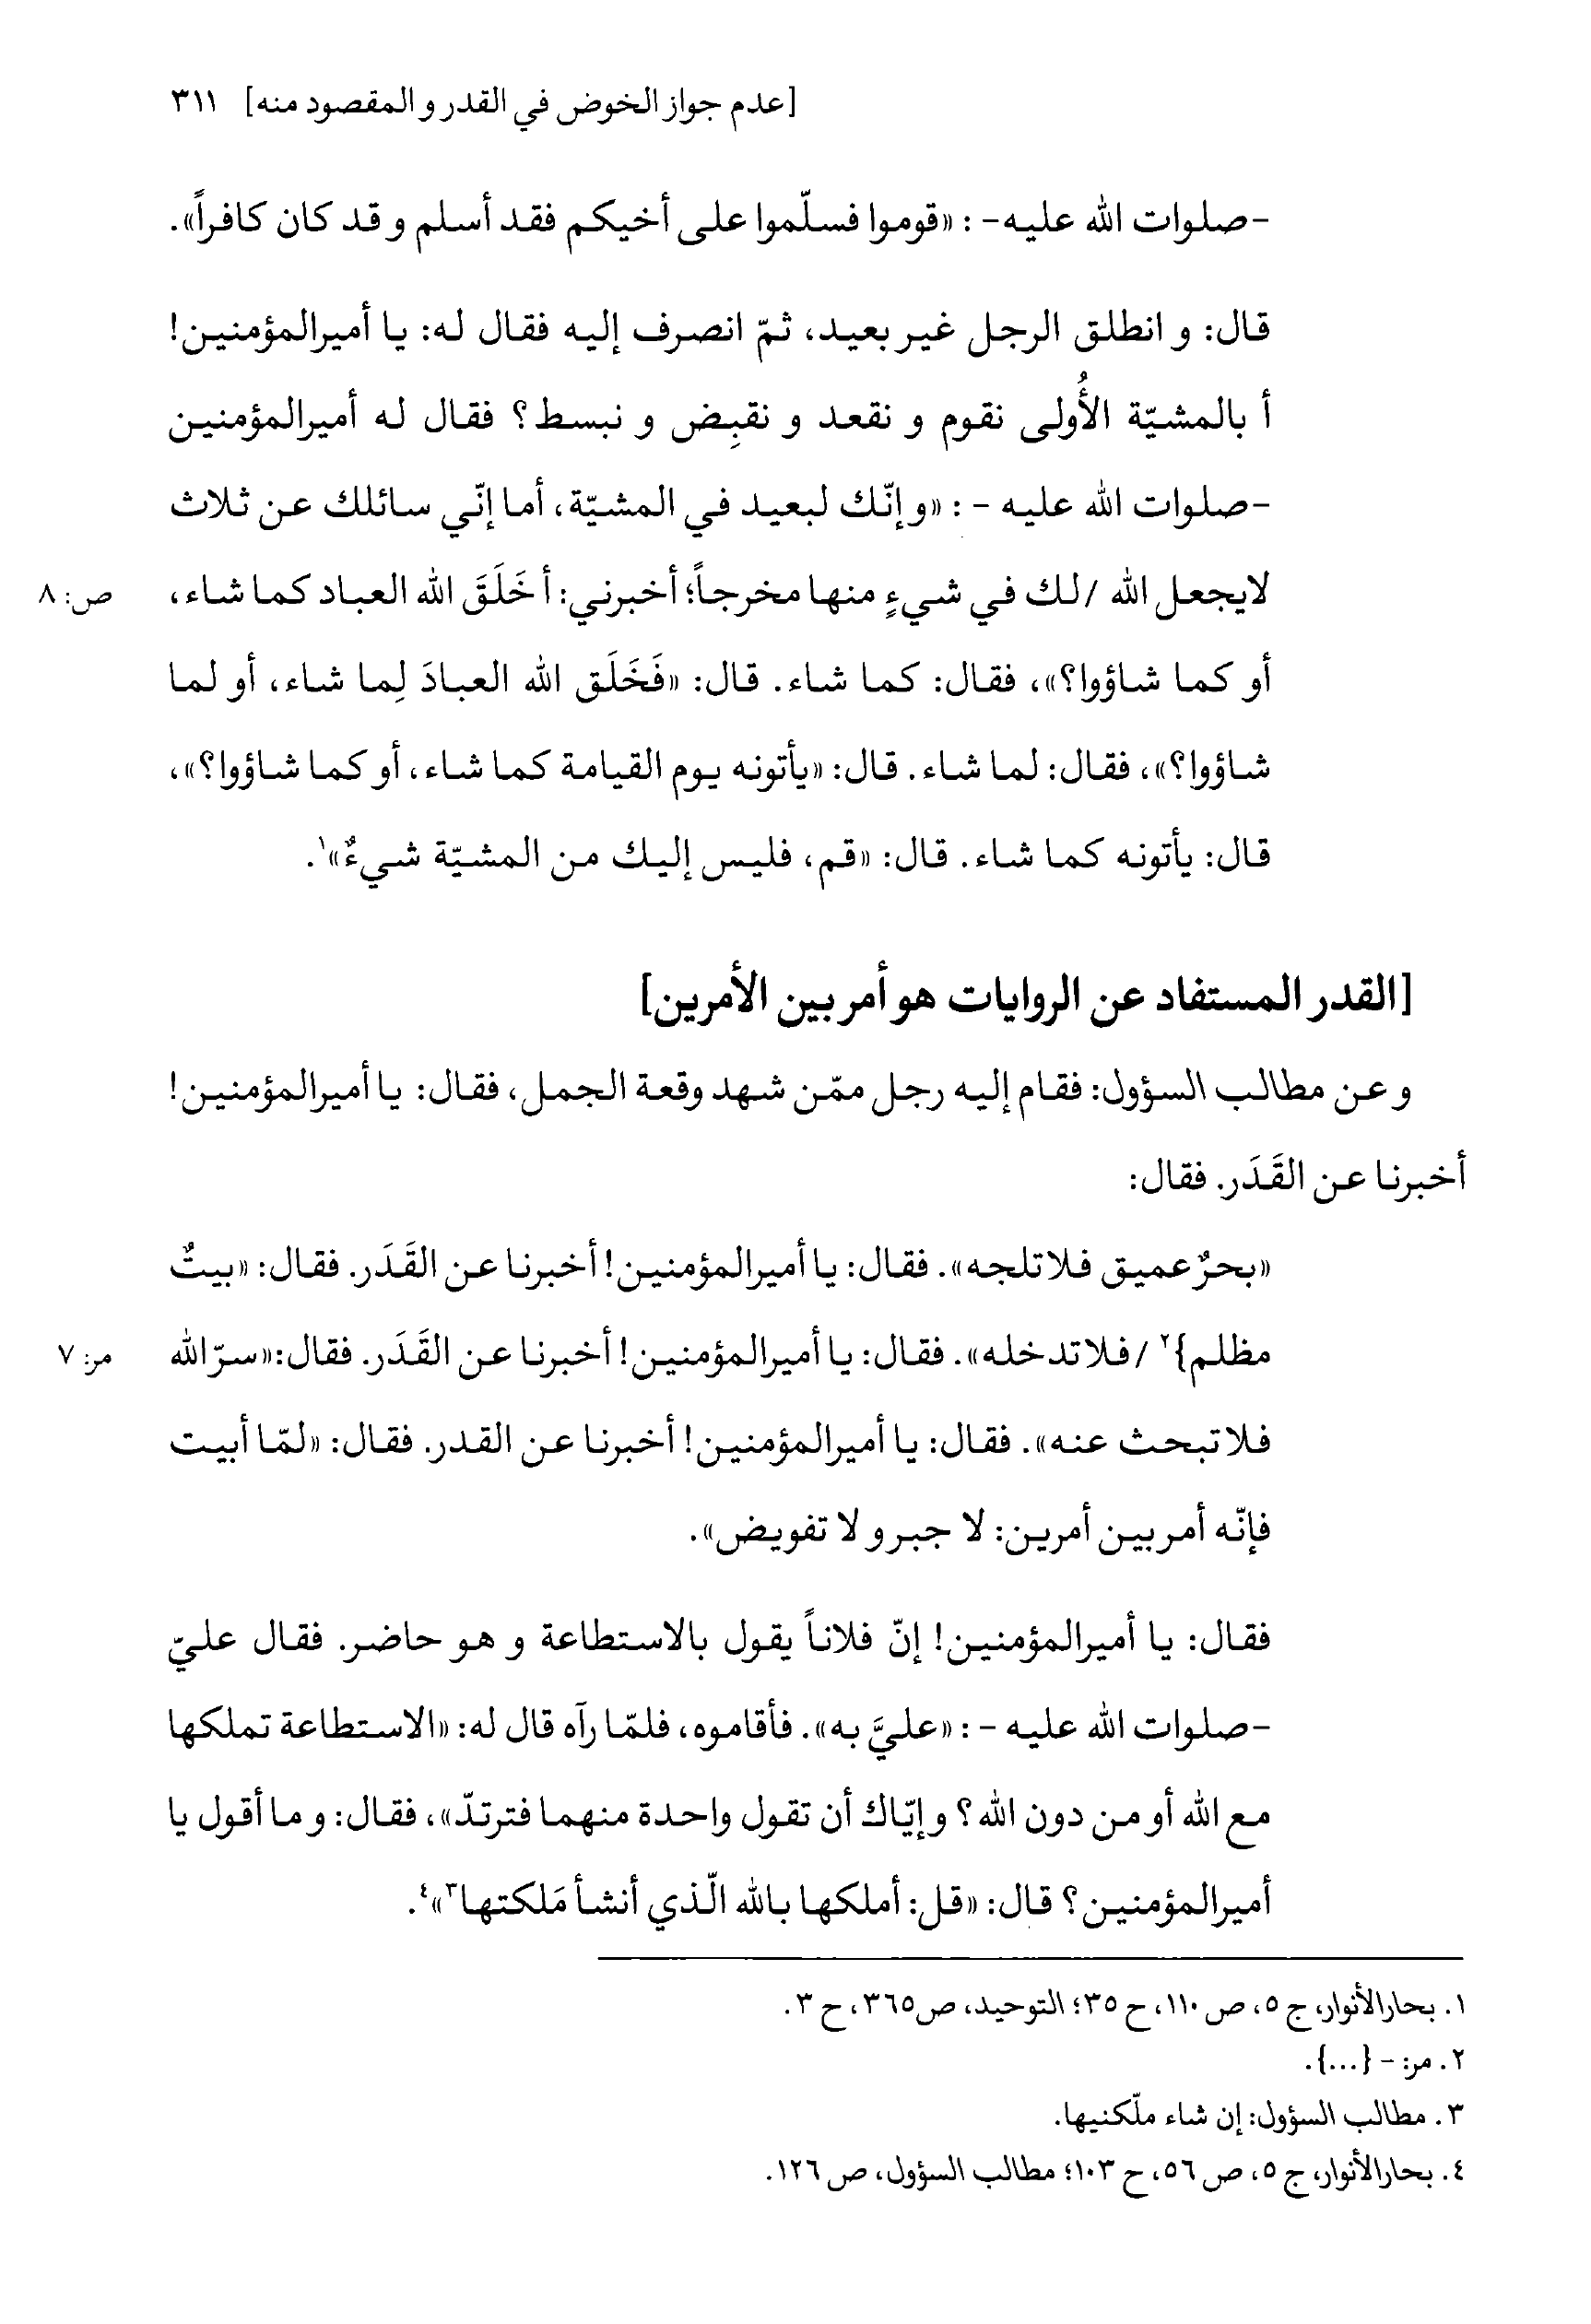 [عدم جواز الخوض في القدر و المقصود منه] ٣١١
-صلوات الله عليه- : «قوموا فسلّموا على أخيكم فقد أسلم و قد كان كافراً».
قال: و انطلق الرجل غير بعيد، ثمّ انصرف إليه فقال له: يا أميرالمؤمنين!
أ بالمشيّة الأُولى نقوم و نقعد و نقبِض و نبسط؟ فقال له أميرالمؤمنين
-صلوات الله عليه - : «و إنّك لبعيد في المشيّة، أما إنّي سائلك عن ثلاث
لايجعل الله /لك في شيءٍ منها مخرجاً؛ أخبرني: أ خَلَقَ الله العباد كما شاء، ص: ٨
أو كما شاؤوا؟»، فقال: كما شاء. قال: «فَخَلَق الله العبادَ لِما شاء، أو لما
شاؤوا؟»، فقال: لما شاء. قال: «يأتونه يوم القيامة كما شاء، أو كما شاؤوا؟»،
قال: يأتونه كما شاء. قال: «قم، فليس إليك من المشيّة شيءٌ»١.
[القدر المستفاد عن الروايات هو أمر بين الأمرين]
و عن مطالب السؤول: فقام إليه رجل ممّن شهد وقعة الجمل، فقال: يا أميرالمؤمنين!
أخبرنا عن القَدَر. فقال:
«بحرٌ عميق فلاتلجه». فقال: يا أميرالمؤمنين! أخبرنا عن القَدَر. فقال: «بيتٌ
مظلم}٢ /فلا تدخله». فقال: يا أميرالمؤمنين! أخبرنا عن القَدَر. فقال:«سرّ الله مر: ٧
فلا تبحث عنه». فقال: يا أميرالمؤمنين! أخبرنا عن القدر. فقال: «لمّا أبيت
فإنّه أمر بين أمرين: لا جبر و لا تفويض».
فقال: يا أميرالمؤمنين! إنّ فلاناً يقول بالاستطاعة و هو حاضر. فقال عليّ
-صلوات الله عليه - : «عليَّ به». فأقاموه، فلمّا رآه قال له: «الاستطاعة تملكها
مع الله أو من دون الله؟ و إيّاك أن تقول واحدة منهما فترتدّ»، فقال: و ما أقول يا
أميرالمؤمنين؟ قال: «قل: أملكها بالله الّذي أنشأ مَلكتها٣»٤.
١. بحارالأنوار، ج ٥، ص ١١٠، ح ٣٥؛ التوحيد، ص٣٦٥، ح ٣.
٢. مر: - {...}.
٣. مطالب السؤول: إن شاء ملّكنيها.
٤. بحارالأنوار، ج ٥، ص ٥٦، ح ١٠٣؛ مطالب السؤول، ص ١٢٦.